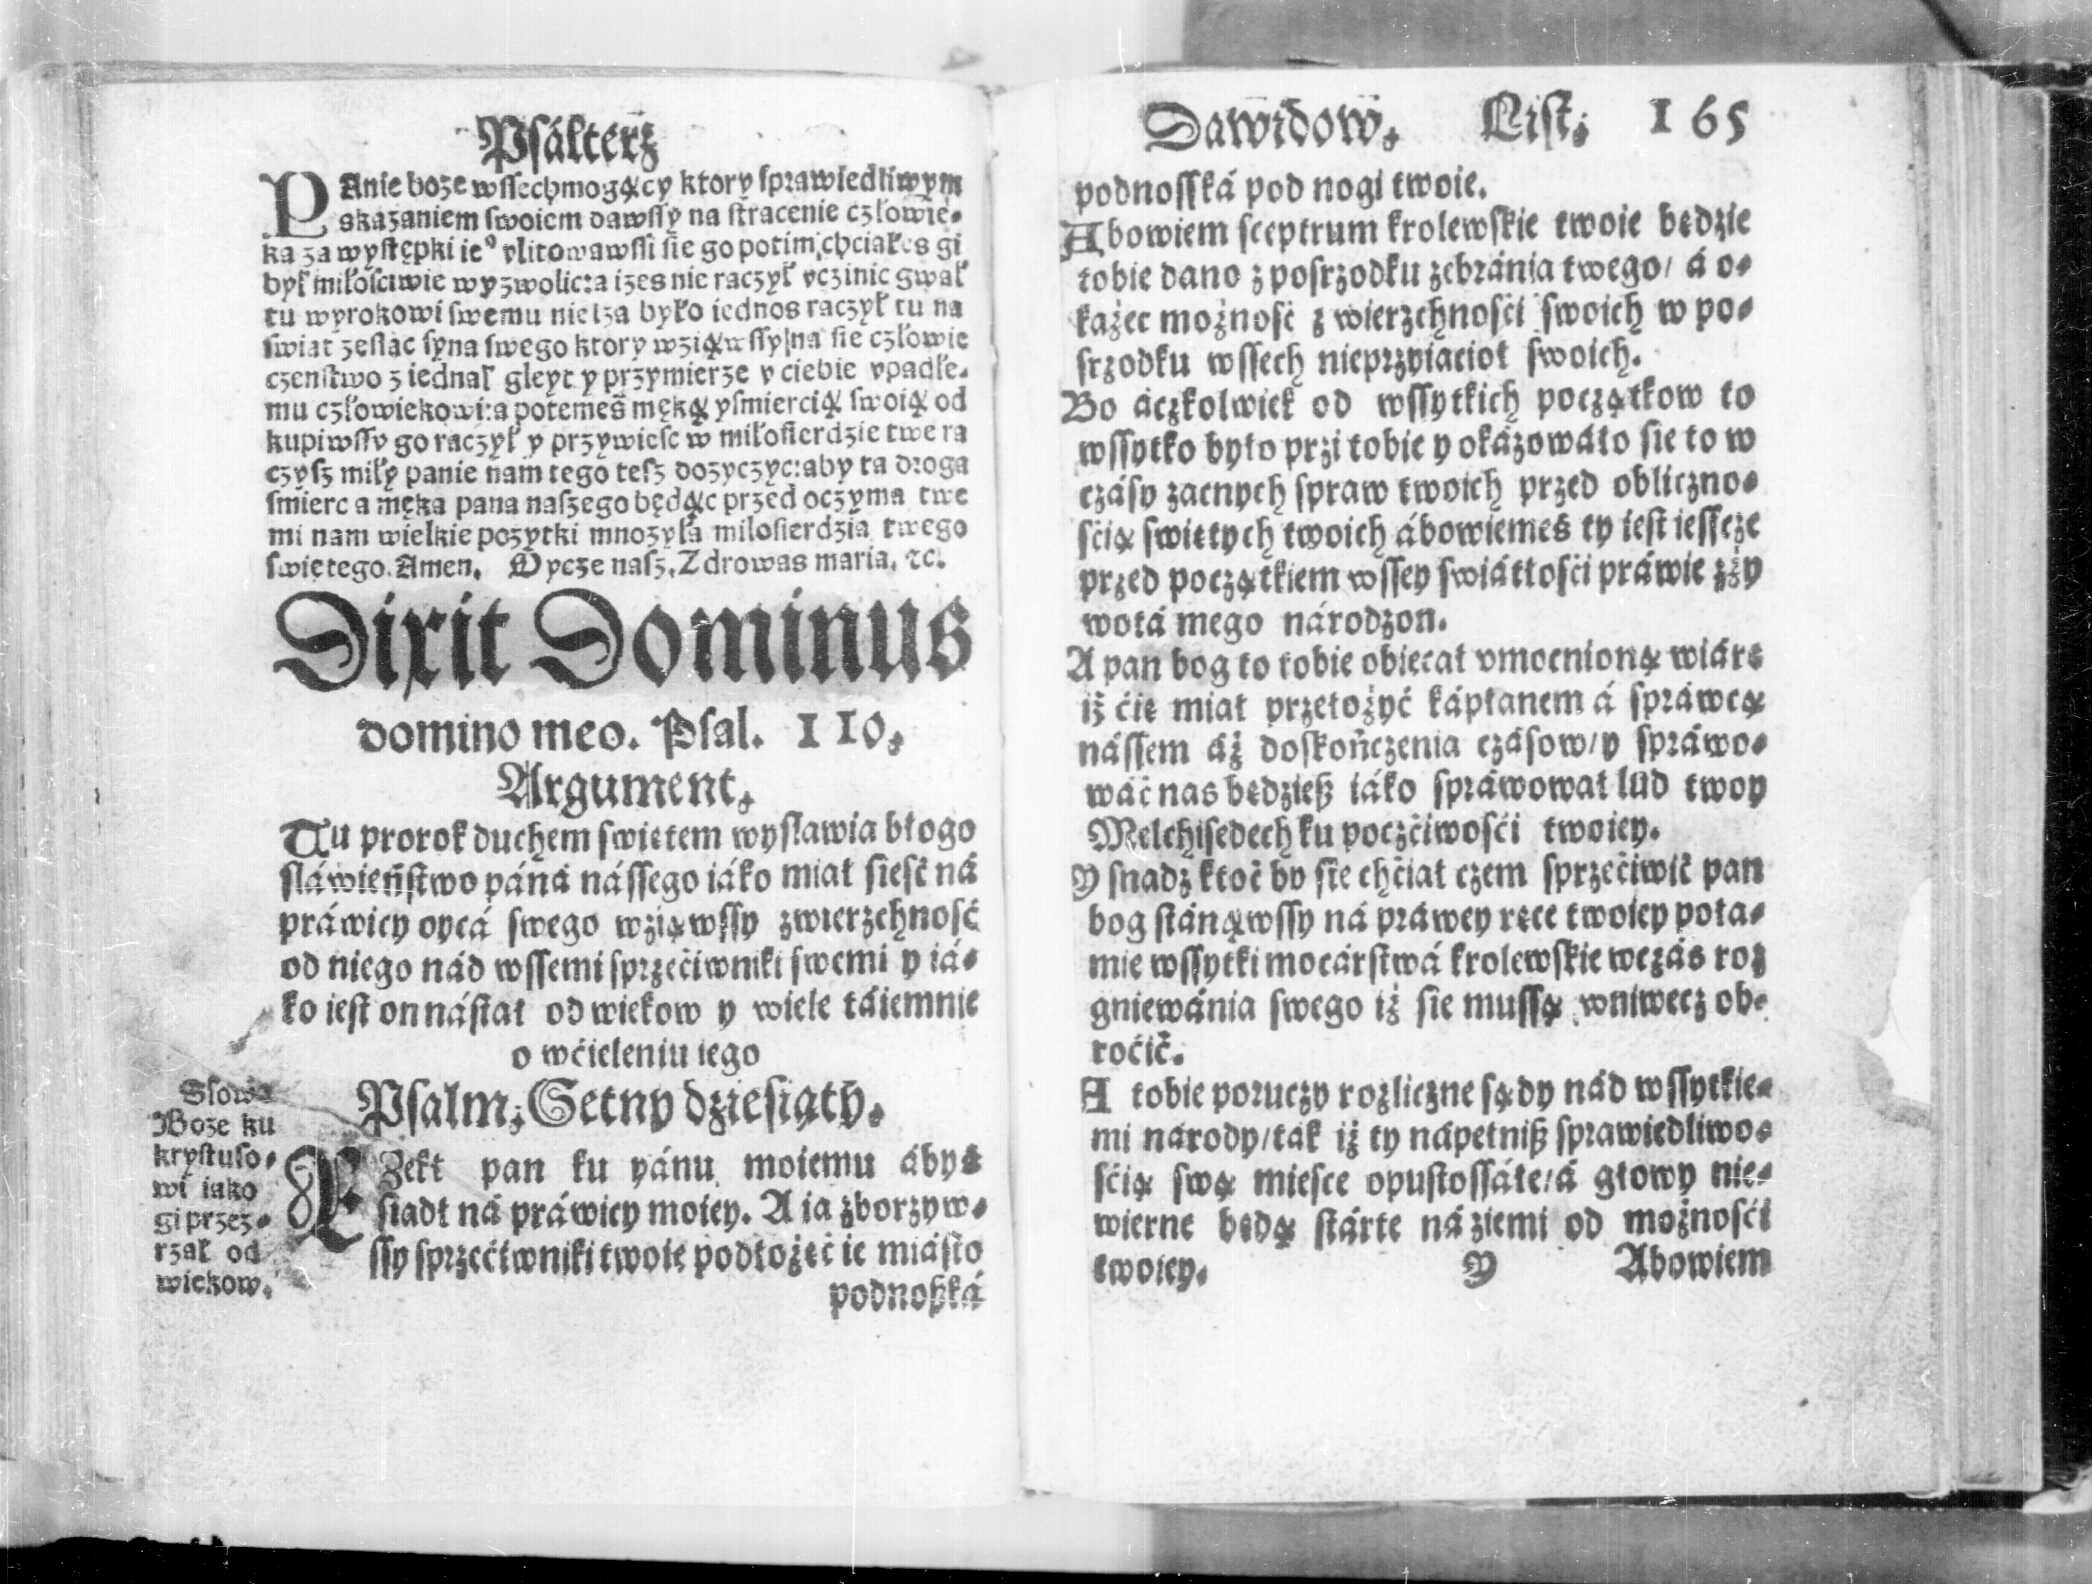 Psálterz
PAnie boze wssechmogący ktory sprawiedliwym
skazaniem swoiem dawssy na stracenie człowie-
ka za występki ie⁹ vlitowawssi sie go potim chciałes gi
był miłosciwie wyzwolić: a izes nie raczył vczinic gwał
tu wyrokowi swemu nielza było iednos raczył tu na
swiat zesłac syna swego ktory wziąwssy na sie człowie
czenstwo ziednał gleyt y przymierze v ciebie vpadłe-
mu człowiekowi: a potemes męką y smiercią swoią od
kupiwssy go raczył y przywiesc w miłosierdzie twe ra
czysz miły panie nam tego tesz dozyczyc: aby ta droga
smierc a męka pana naszego będąc przed oczyma twe
mi nam wielkie pozytki mnozyła milosierdzia twego
swiętego. Amen. Oycze nasz. Zdrowas maria. ⁊c.
Dixit Dominus
domino meo. Psal. 110.
Argument.
Tu prorok duchem swiętem wysławia błogo
sláwieństwo páná nássego iáko miał sieść ná
práwicy oycá swego wziąwssy zwierzchność
od niego nád wssemi sprzećiwniki swemi y iá-
ko iest on nástał od wiekow y wiele táiemnie
o wćieleniu iego
Psalm. Setny dziesiąty.
Slowa
Boze ku
krystuso-
wi iako
gi przez-
rzał od
wiekow.
RZekł pan ku pánu moiemu ábyś
siadł ná práwicy moiey. A ia zborzyw-
ssy sprzećiwniki twoie podłożęć ie miásto
podnoßká
Dawidow. List. 165
podnosská pod nogi twoie.
Abowiem sceptrum krolewskie twoie będzie
tobie dano z posrzodku zebránia twego/ á o-
każec możność z wierzchnośći swoich w po-
srzodku wssech nieprzyiacioł swoich.
Bo áczkolwiek od wssytkich początkow to
wssytko było przi tobie y okázowáło sie to w
czásy zacnych spraw twoich przed obliczno-
śćią swiętych twoich ábowiemeś ty iest iesscże
przed początkiem wssey swiátłośći práwie zży
wotá mego národzon.
A pan bog to tobie obiecał vmocnioną wiárę
iż ćię miał przełożyć kápłanem á spráwcą
nássem áż doskończenia czásow/ y spráwo-
wáć nas będzieß iáko spráwował lud twoy
Melchisedech ku poczćiwośći twoiey.
Y snadz ktoć by sie chćiał czem sprzećiwić pan
bog stánąwssy ná práwey ręce twoiey poła-
mie wssytki mocárstwá krolewskie wczás roz
gniewánia swego iż sie mussą wniwecz ob-
roćić.
A tobie poruczy rozliczne sądy nád wssytkie-
mi narody/ tak iż ty nápełniß sprawiedliwo-
śćią swą miesce opustossáłe/ á głowy nie-
wierne będą stárte ná ziemi od możnośći
twoiey. Y Abowiem